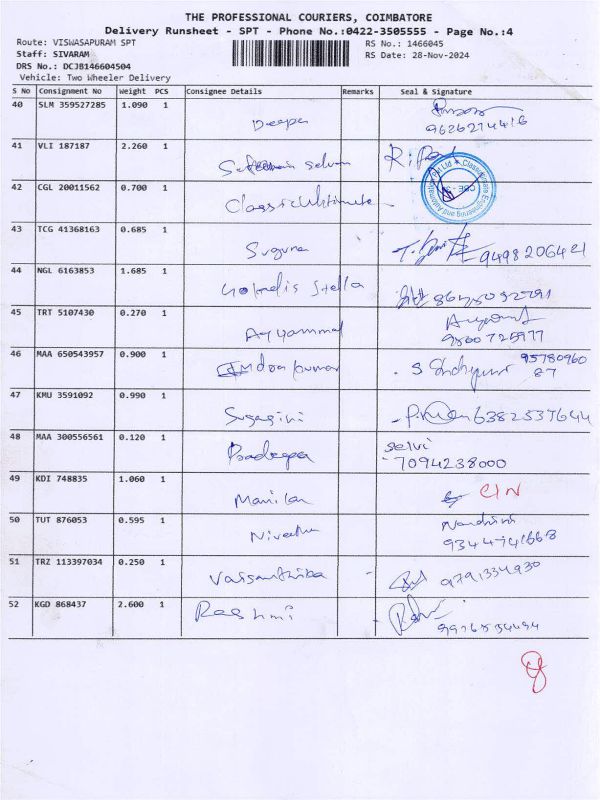 THE PROFESSIONAL COURIERS, COIMBATORE
Delivery Runsheet - SPT - Phone No.:0422-3505555 - Page No.:4
Route: VISWASAPURAM SPT RS No.: 1466045
Staff: SIVARAM RS Date: 28-Nov-2024
DRS No.: DCJB146604504
Vehicle: Two Wheeler Delivery
S No Consignment No Weight PCS Consignee Details Remarks Seal & Signature
40 SLM 359527285 1.090 1 Deepa
9626274416
41 VLI 187187 2.260 1 selvam
42 CGL 20011562 0.700 1 Classic Ultimate
43 TCG 41368163 0.685 1 Suguna 9498206421
44 NGL 6163853 1.685 1 Stella
45 TRT 5107430 0.270 1 Ayyammal
9800725977
46 MAA 650543957 0.900 1 Indra kumar 95780960
87
47 KMU 3591092 0.990 1 Sugagini 6382537644
48 MAA 300556561 0.120 1 Pradeepa selvi
7094238000
49 KDI 748835 1.060 1 Manilan
50 TUT 876053 0.595 1 Nivetha Nandhini
9344741668
51 TRZ 113397034 0.250 1 Vasanthika 9791334930
52 KGD 868437 2.600 1 Rashmi